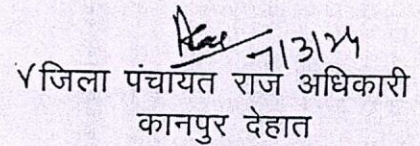 7/3/24
जिला पंचायत राज अधिकारी
कानपुर देहात